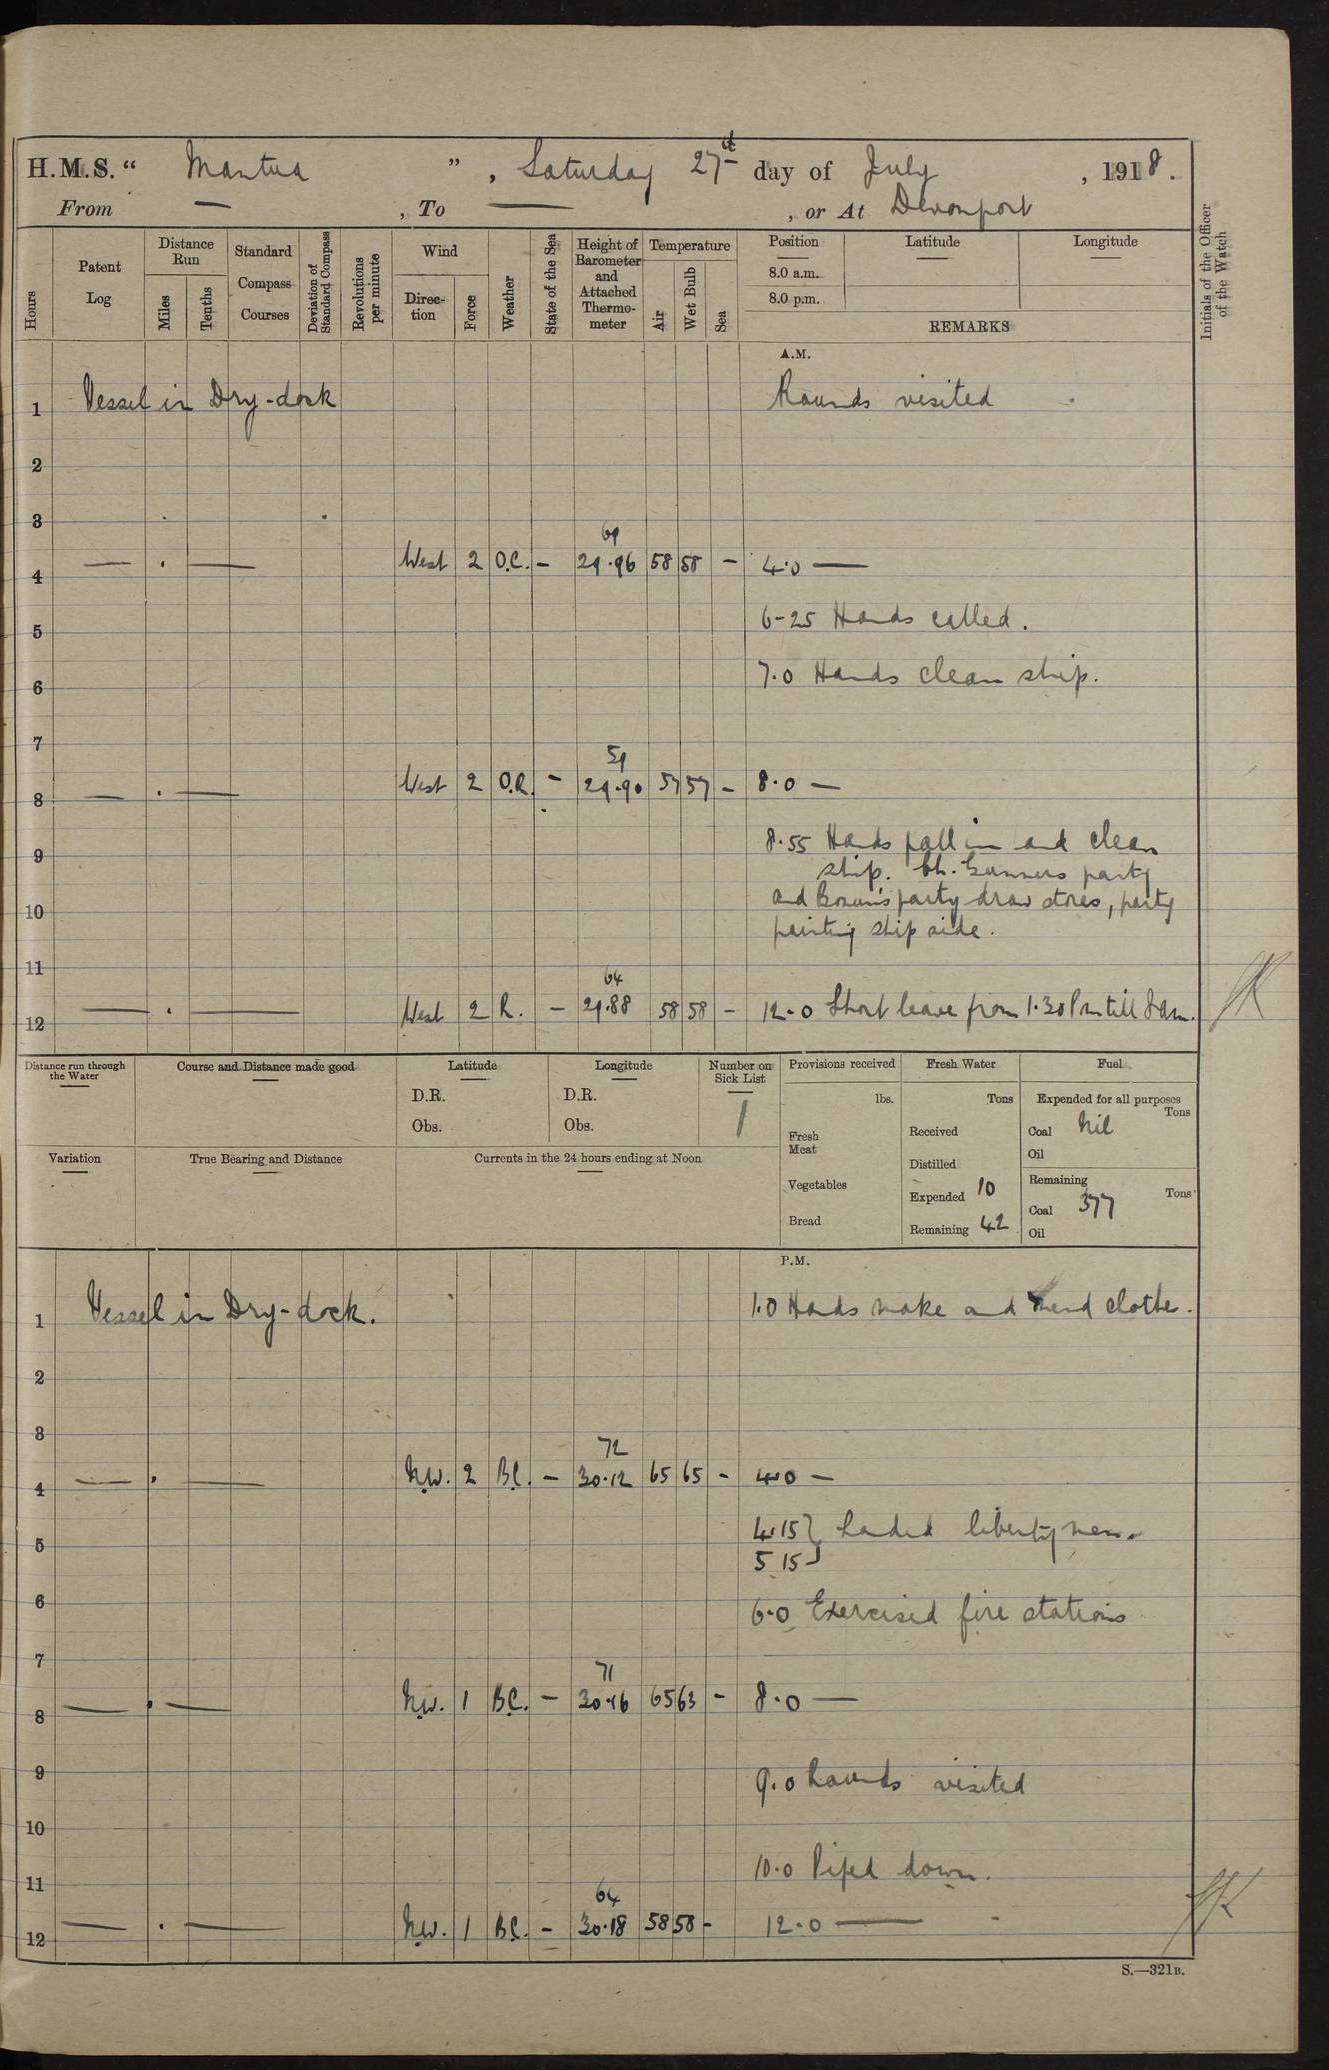 H.M.S. “ Mantua ” , Saturday 27th day of July , 1918.
From — , To — , or At Devonport
Hours
Patent Log
Distance Run
Miles
Tenths
Standard Compass Courses
Deviation of Standard Compass
Revolutions per minute
Wind
Direc-tion
Force
Weather
State of the Sea
Height of Barometer and Attached Thermo-meter
Temperature
Air
Wet Bulb
Sea
Position
8.0 a.m.
8.0 p.m.
Latitude
Longitude
REMARKS
Initials of the Officer of the Watch
A.M.
1 Vessel in Dry-dock Rounds visited
2
3
69
4 — . — West 2 O.C. — 29.96 58 58 — 4.0 —
5 6-25 Hands called.
6 7.0 Hands clean ship.
7
59
8 — . — West 2 O.R. — 29.90 57 57 — 8.0 —
9 8.55 Hands fall in and clean
ship. Ch. Gunners party
10 and Bosun's party draw stores, party
painting ship side.
11
64
12 — . — West 2 R. — 29.88 58 58 — 12.0 Short leave from 1.30 Pm till 8 am.
Distance run through the Water
Course and Distance made good
Latitude
D.R.
Obs.
Longitude
D.R.
Obs.
Number on Sick List
1
Provisions received
lbs.
Fresh Meat
Vegetables
Bread
Fresh Water
Tons
Received
Distilled
Expended 10
Remaining 42
Fuel
Expended for all purposes
Tons
Coal Nil
Oil
Remaining
Tons
Coal 377
Oil
Variation
True Bearing and Distance
Currents in the 24 hours ending at Noon
P.M.
1 Vessel in Dry-dock. 1.0 Hands make and mend clothe.
2
3
72
4 — . — N.W. 2 B.C. — 30.12 65 65 — 4.0 —
4.15 } Landed liberty men.
5 5 15
6 6.0 Exercised fire stations
7
71
8 — . — N.W. 1 B.C. — 30.16 65 63 — 8.0 —
9 9.0 Rounds visited
10
10.0 Piped down.
11
64
12 — . — N.W. 1 B.C. — 30.18 58 58 — 12.0 —
S.—321B.